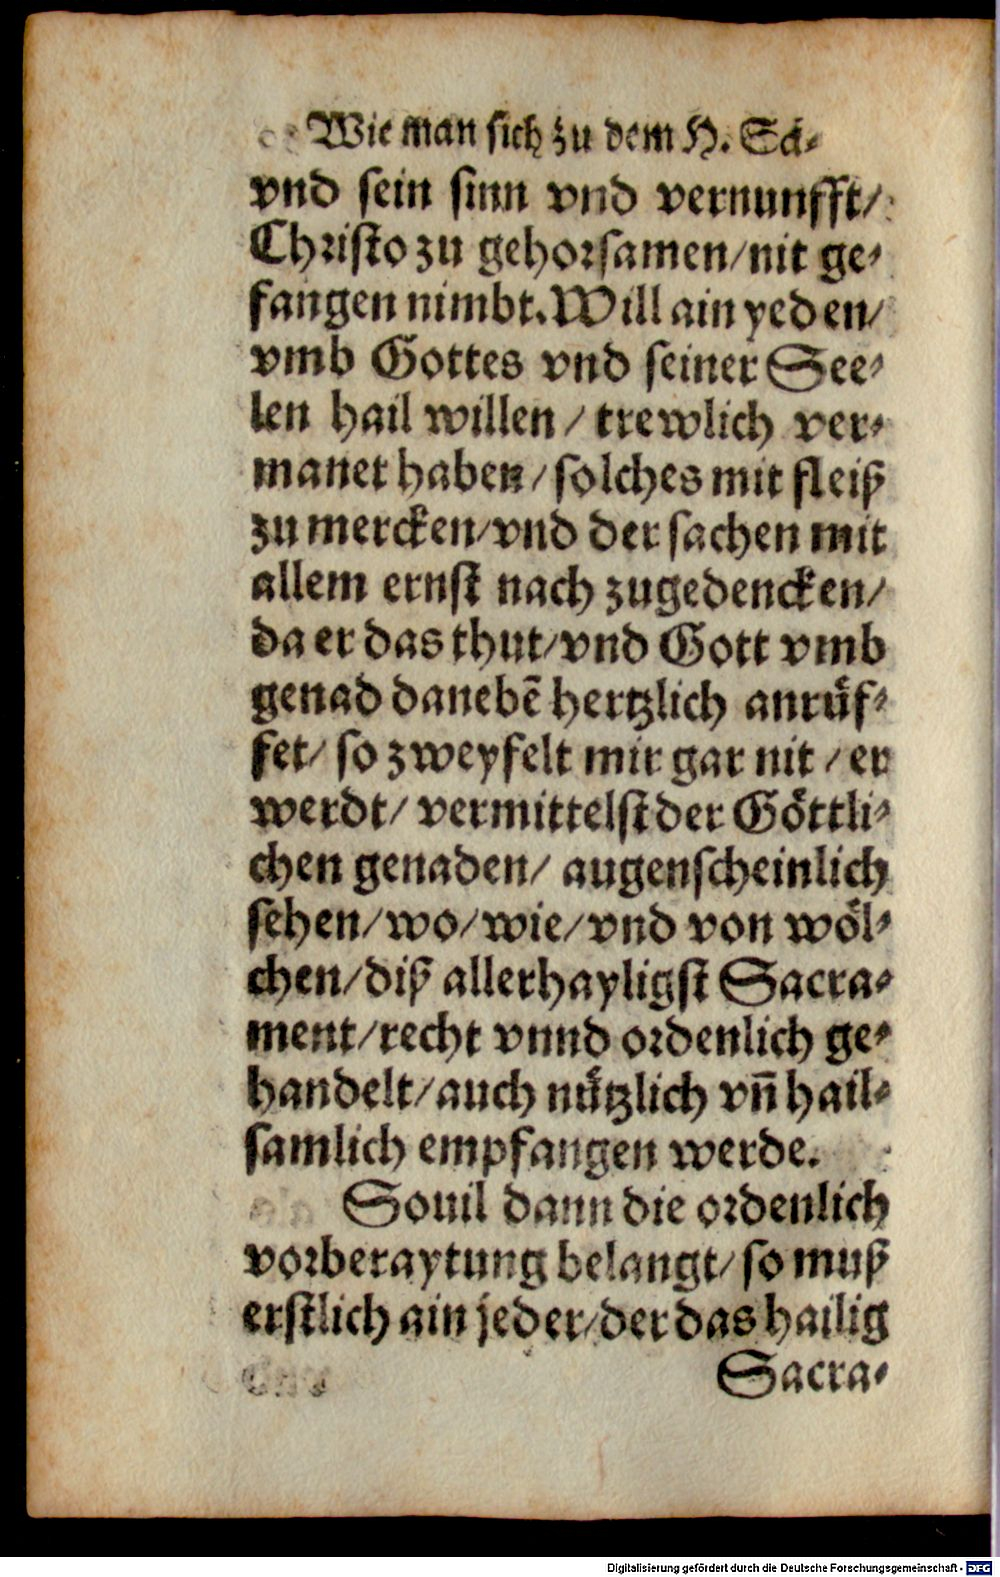 Wie man sich zu dem H. Sa⸗
vnd sein sinn vnd vernunfft/
Christo zu gehorsamen/nit ge⸗
fangen nimbt. Will ain yeden/
vmb Gottes vnd seiner See⸗
len hail willen / trewlich ver⸗
manet haben/solches mit fleiß
zu mercken/vnd der sachen mit
allem ernst nach zugedencken/
da er das thut/vnd Gott vmb
genad danebē hertzlich anruͤf⸗
fet/ so zweyfelt mir gar nit / er
werdt/ vermittelst der Goͤttli⸗
chen genaden/ augenscheinlich
sehen/wo/wie/vnd von woͤl⸗
chen/diß allerhayligst Sacra⸗
ment/recht vnnd ordenlich ge⸗
handelt/auch nuͤtzlich vn̄ hail⸗
samlich empfangen werde.
Souil dann die ordenlich
vorberaytung belangt/so muß
erstlich ain jeder/der das hailig
Sacra⸗
Digitalisierung gefördert durch die Deutsche Forschungsgemeinschaft - DFG